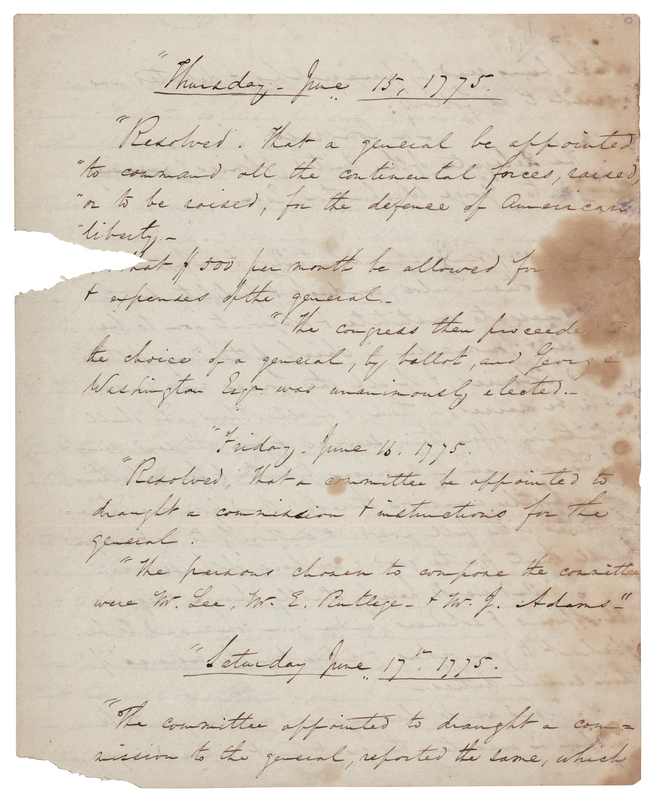 "Thursday - June 15, 1775.
"Resolved. That a general be appointed
"to command all the continental forces, raised,
"or to be raised, for the defence of American
"liberty. -
that $500 per month be allowed for
& expenses of the general. -
"The congress then proceede
the choice of a general, by ballot, and George
Washington Esqr. was unanimously elected. -
"Friday - June 16. 1775.
"Resolved, That a committee be appointed to
draught a commission & instructions for the
general.
"The persons chosen to compose the committee
were Mr. Lee, Mr. E. Rutlege - & Mr. J. Adams -"
"Saturday June 17th 1775.
"The committee appointed to draught a com=
mission to the general, reported the same, which